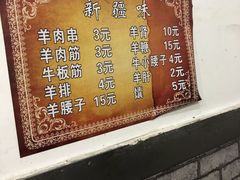 新疆味
羊肉串 3元
羊肉筋 3元
牛板筋 3元
羊排 4元
羊腰子 15元
羊肾 10元
羊鞭 15元
牛小腰子 4元
羊肝 2元
馕 5元